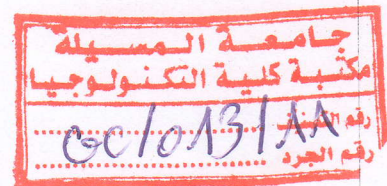 جامعة المسيلة
مكتبة كلية التكنولوجيا
رقم
GC/013/11
رقم الجرد